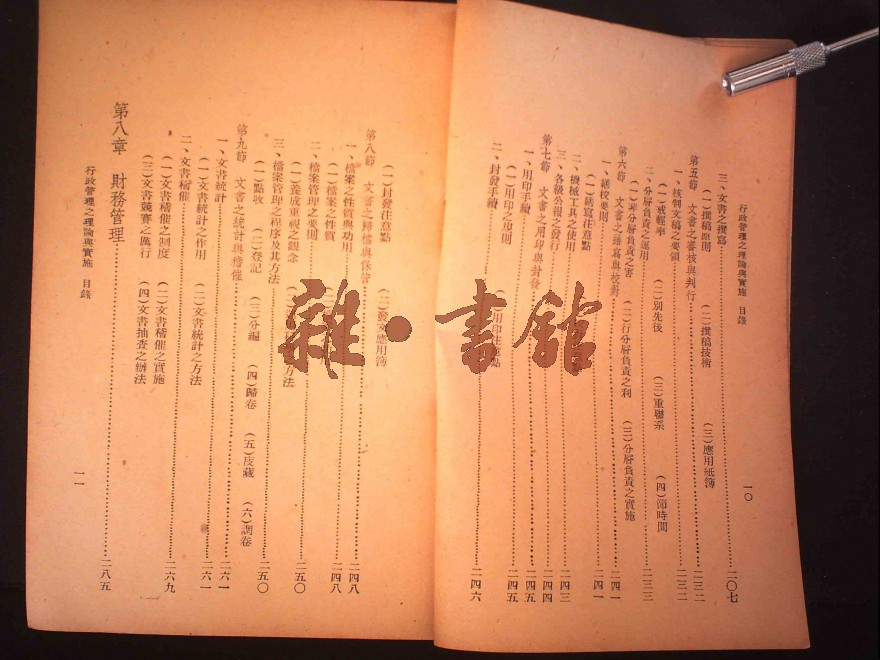 行政管理之理論與實施 目錄
一〇
三、文書之撰寫 二〇七
(一)撰稿原則 (二)撰稿技術 (三)應用紙簿
第五節 文書之審核與判行 二三二
一、核制文稿之要領 二三二
(一)戒輕率 (二)別先後 (三)重聯系 (四)節時間
二、分層負責之運用 二三三
(一)非分層負責之害 (二)行分層負責之利 (三)分層負責之實施
第六節 文書之繕寫與校對 二四一
一、繕校要則 二四一
(一)繕寫注意點
二、機械工具之使用 二四三
三、各級公報之發行 二四四
第七節 文書之用印與封發 二四五
一、用印手續 二四五
(一)用印之規則 (二)用印注意點
二、封發手續 二四六
(一)封發注意點 (二)發文應用簿
第八節 文書之歸檔與保管 二四八
一、檔案之性質與功用 二四八
(一)檔案之性質
二、檔案管理之要則 二五〇
(一)養成重視之觀念 方法
三、檔案管理之程序及其方法 二五〇
(一)點收 (二)登記 (三)分編 (四)歸卷 (五)庋藏 (六)調卷
第九節 文書之統計與稽催 二六一
一、文書統計 二六一
(一)文書統計之作用 (二)文書統計之方法
二、文書稽催 二六九
(一)文書稽催之制度 (二)文書稽催之實施
(三)文書競賽之厲行 (四)文書抽查之辦法
第八章 財務管理 二八五
行政管理之理論與實施 目錄
一一
雜·書館